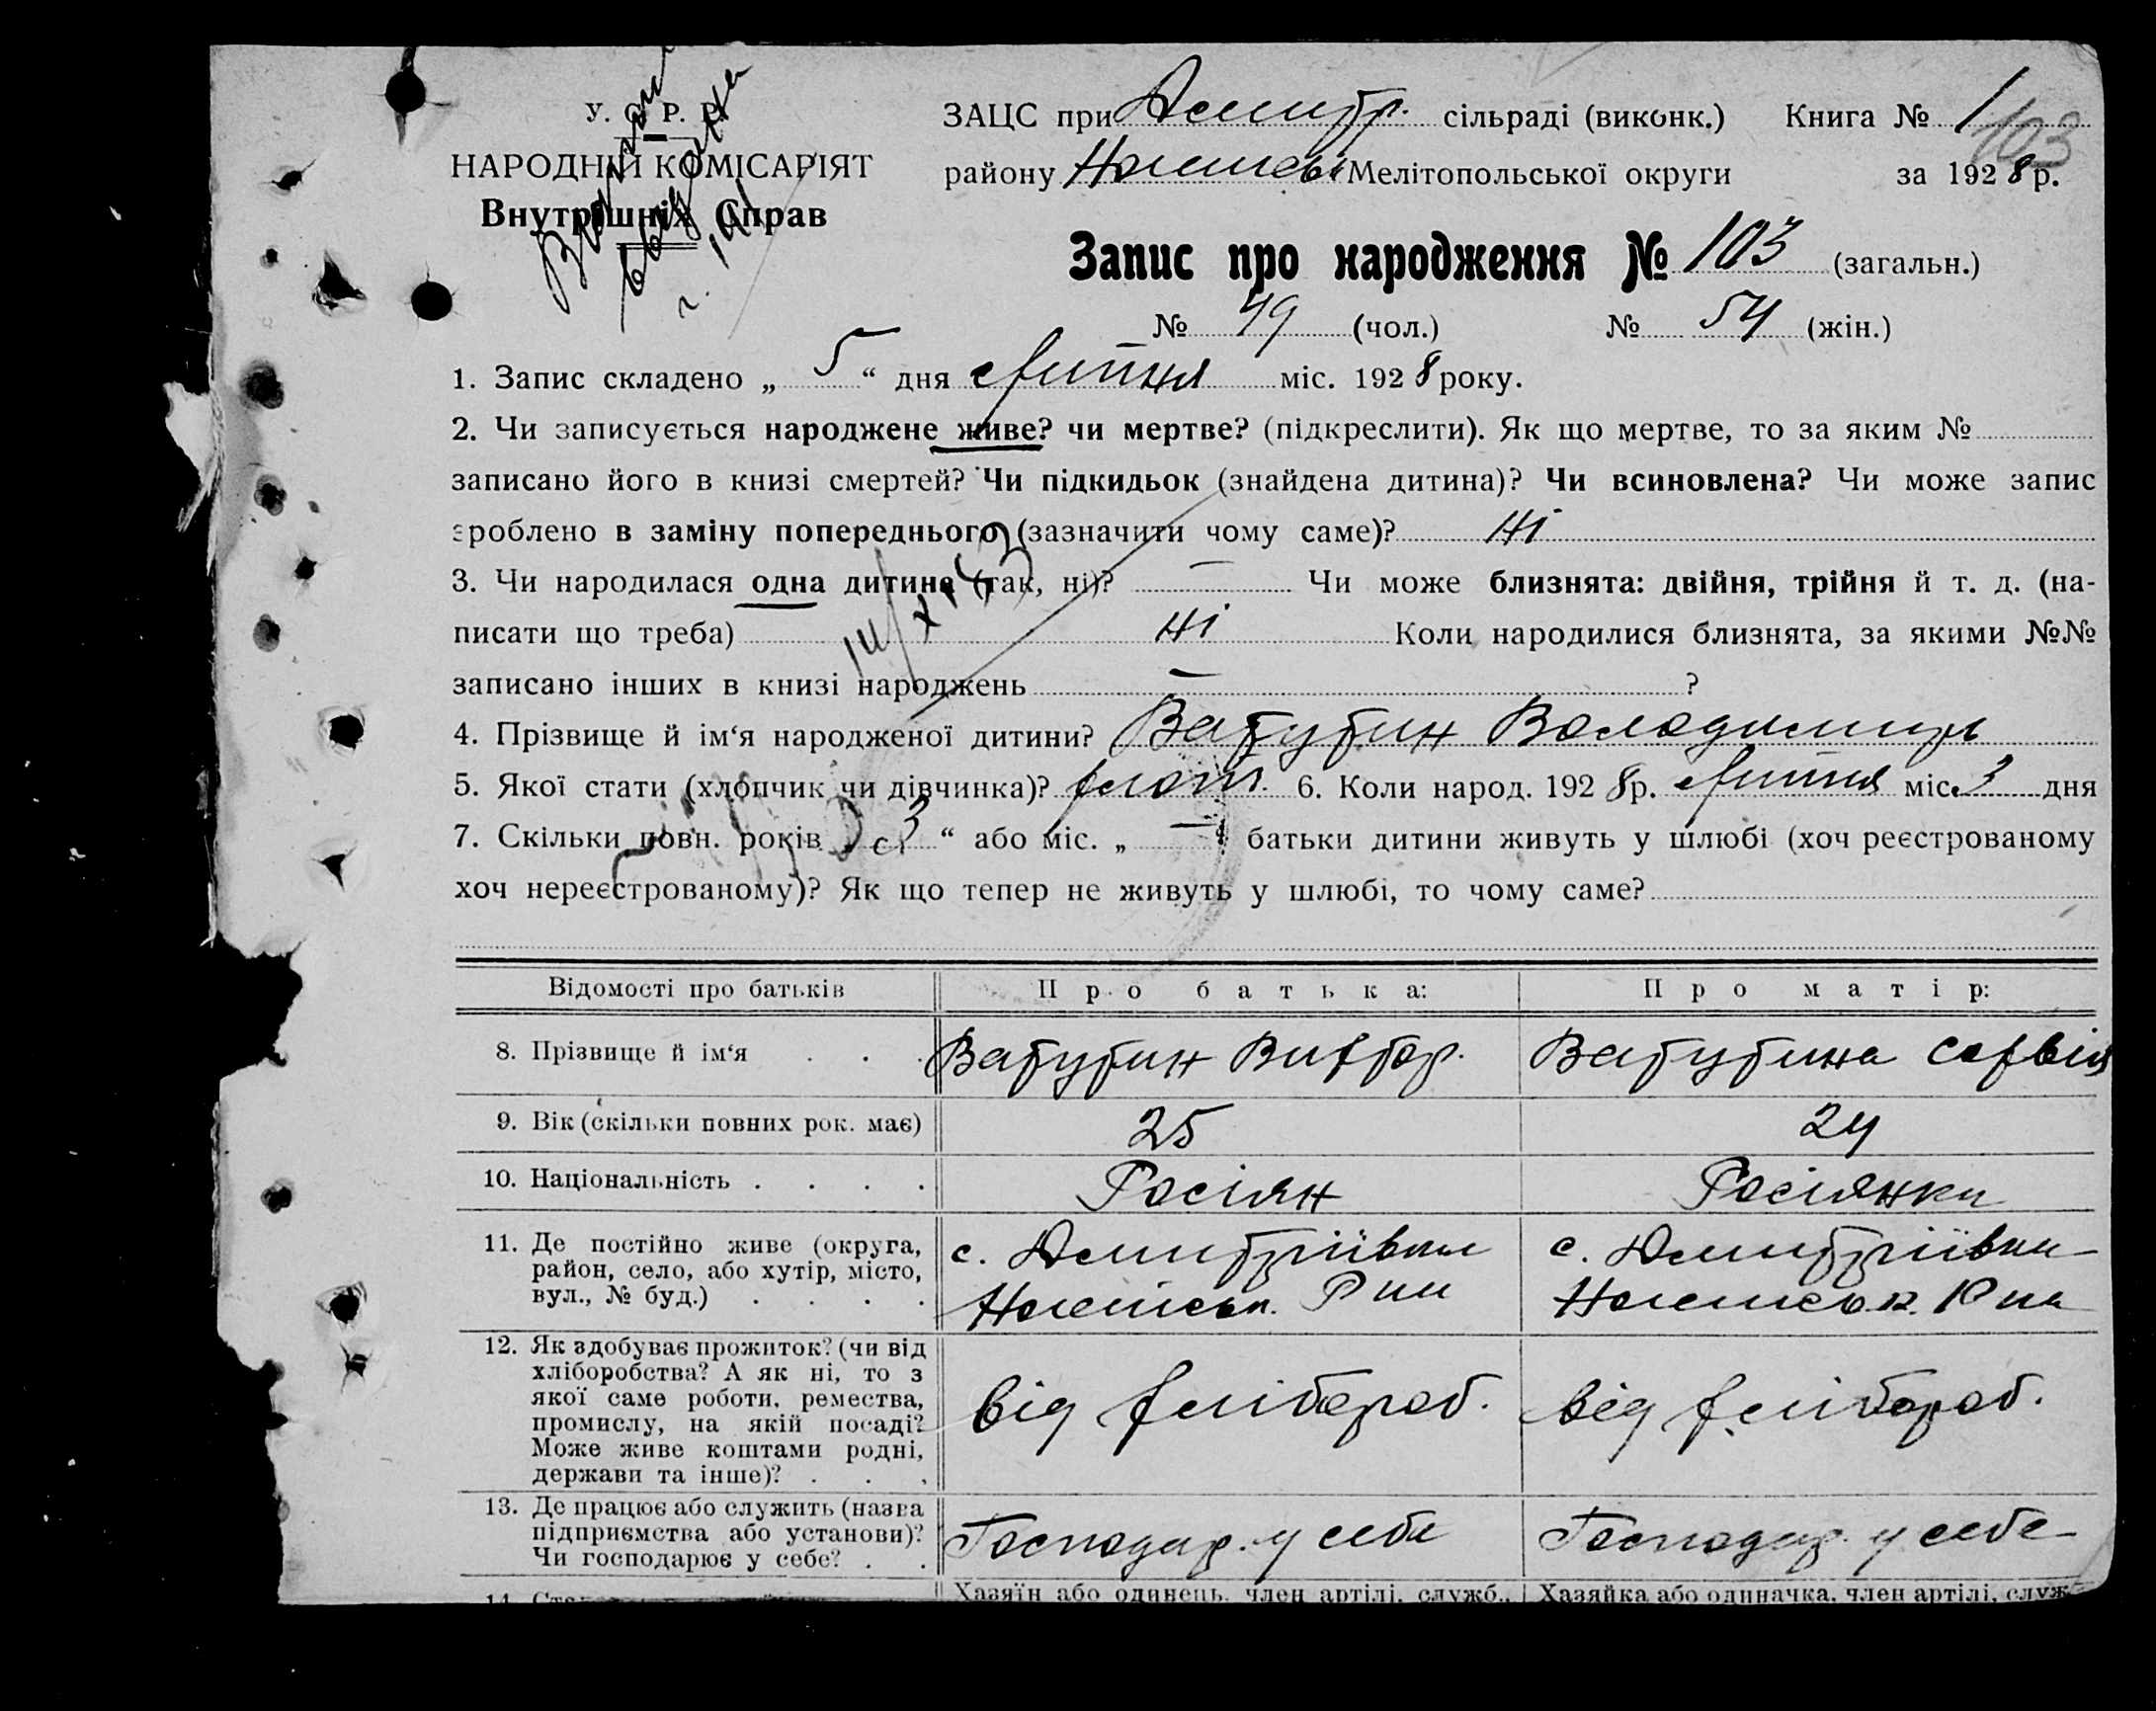 У. С. Р. Р.
НАРОДНІЙ КОМІСАРІЯТ
Внутрішніх Справ
ЗАЦС при Дмитр. сільраді (виконк.) Книга № 1
103
району Мелітопольської округи за 1928 р.
Запис про народження № 103 (загальн.)
№ 49 (чол.) № 54 (жін.)
1. Запис складено „ 5 “ дня Липня міс. 1928 року.
2. Чи записується народжене живе? чи мертве? (підкреслити). Як що мертве, то за яким №
записано його в книзі смертей? Чи підкидьок (знайдена дитина)? Чи всиновлена? Чи може запис
зроблено в заміну попереднього (зазначити чому саме)? Ні
3. Чи народилася одна дитина (так, ні)? — Чи може близнята: двійня, трійня й т. д. (на-
писати що треба) Ні Коли народилися близнята, за якими №№
записано інших в книзі народжень — ?
4. Прізвище й ім‘я народженої дитини? Ватутин Володимир
5. Якої стати (хлопчик чи дівчинка)? хлоп. 6. Коли народ. 1928 р. Липня міс. 3 дня
7. Скільки повн. років „ 3 “ або міс. „ — “ батьки дитини живуть у шлюбі (хоч реєстрованому
хоч нереєстрованому)? Як що тепер не живуть у шлюбі, то чому саме?
Відомості про батьків Про батька: Про матір:
8. Прізвище й ім‘я . . . Ватутин Виктор. Ватутина
9. Вік (скільки повних рок. має) 25 24
10. Національність . . . . Росіян Росіянка
11. Де постійно живе (округа,
район, село, або хутір, місто,
вул., № буд.) . . . .
с. Дмитріївка
Р на
с. Дмитріївка
Р на
12. Як здобуває прожиток? (чи від
хліборобства? А як ні, то з
якої саме роботи, ремества,
промислу, на якій посаді?
Може живе коштами родні,
держави та інше)? . . .
Від хлібороб.
Від хлібороб.
13. Де працює або служить (назва
підприємства або установи)?
Чи господарює у себе? . .
Господар. у себе
Господар. у себе
Хазяїн або одинець, член артілі, служб., Хазяйка або одиначка, член артілі, служ